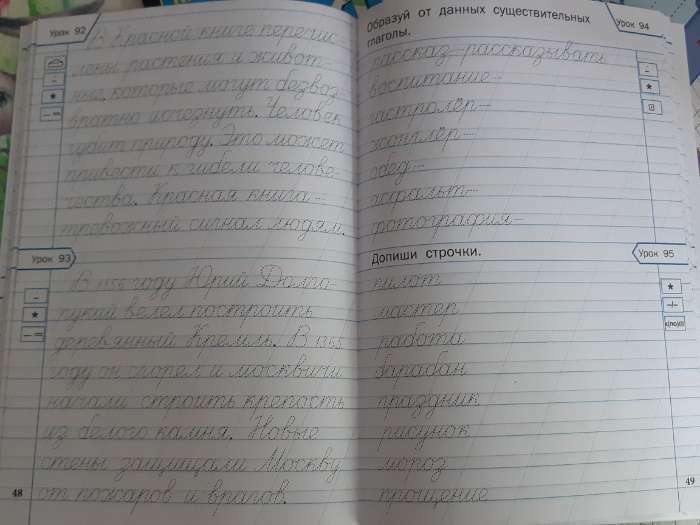 Урок 92
В Красной книге перечис-
лены растения и живот-
ные, которые могут безвоз-
вратно исчезнуть. Человек
губит природу. Это может
привести к гибели челове-
чества. Красная книга –
тревожный сигнал людям.
Урок 93
В 1156 году Юрий Долго-
рукий велел построить
деревянный Кремль. В 1365
году он сгорел и москвичи
начали строить крепость
из белого камня. Новые
стены защищали Москву
от пожаров и врагов.
48
Образуй от данных существительных
глаголы.
Урок 94
рассказ – рассказывать
воспитание –
гастролёр –
жонглёр –
обед –
асфальт –
фотография –
Допиши строчки.
Урок 95
пилот
мастер
работа
барабан
праздник
рисунок
мороз
прощение
49